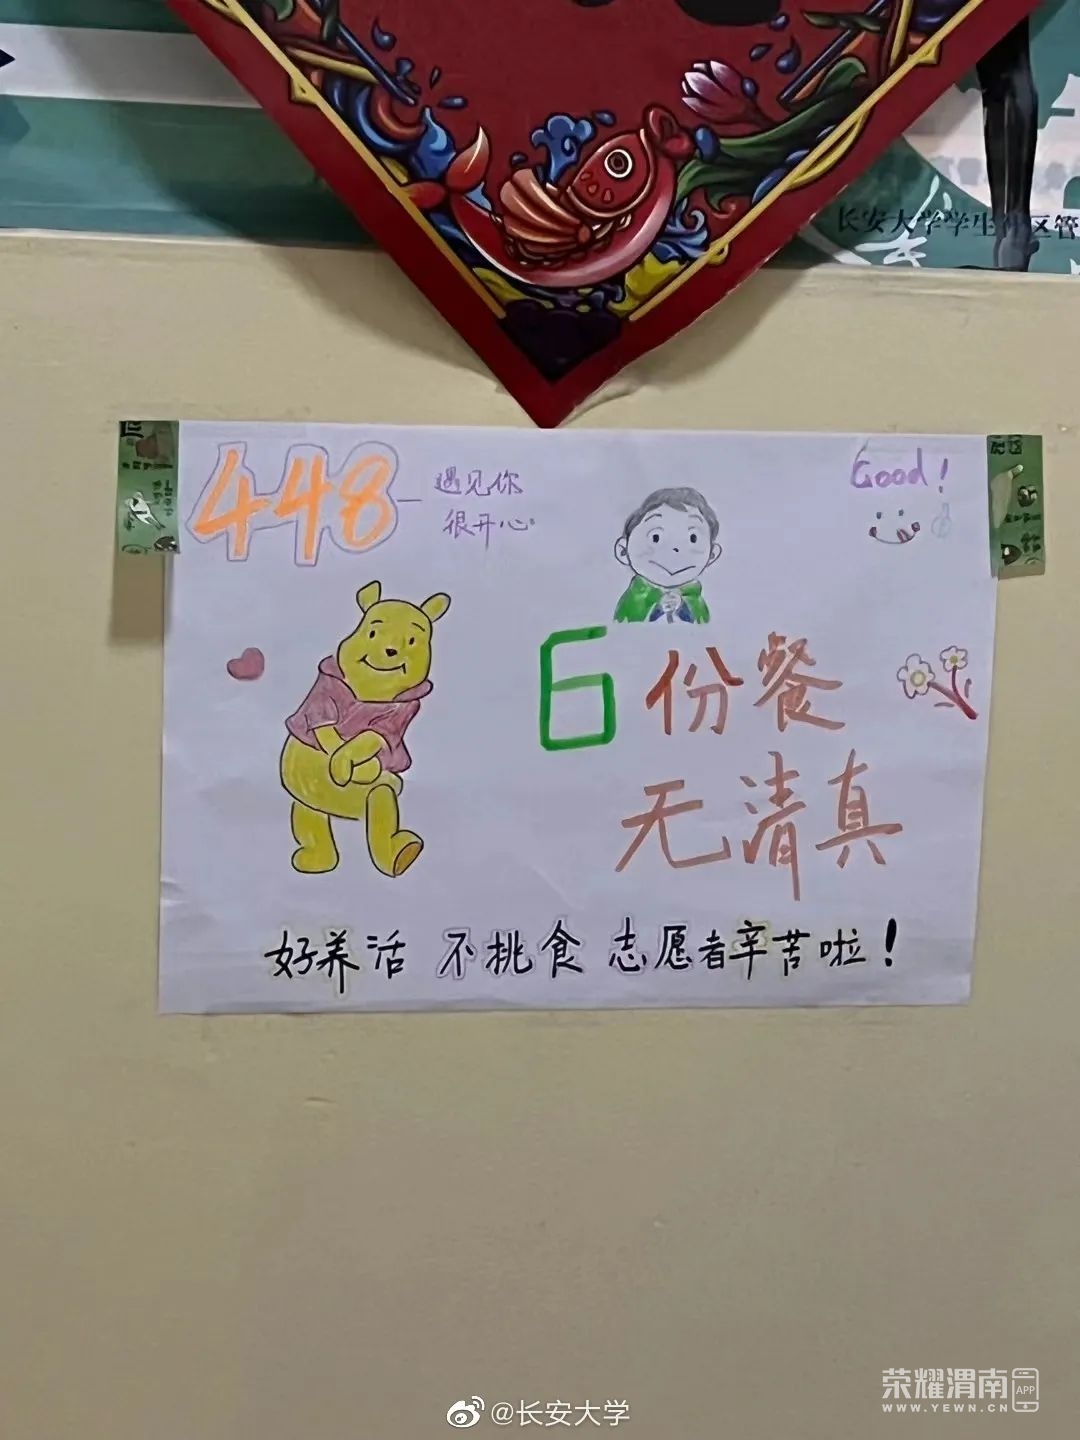 长安大学学生社区管
448
遇见你
很开心
Good!
6份餐
无清真
好养活 不挑食 志愿者辛苦啦!
荣耀渭南
APP
WWW.YEWN.CN
@长安大学